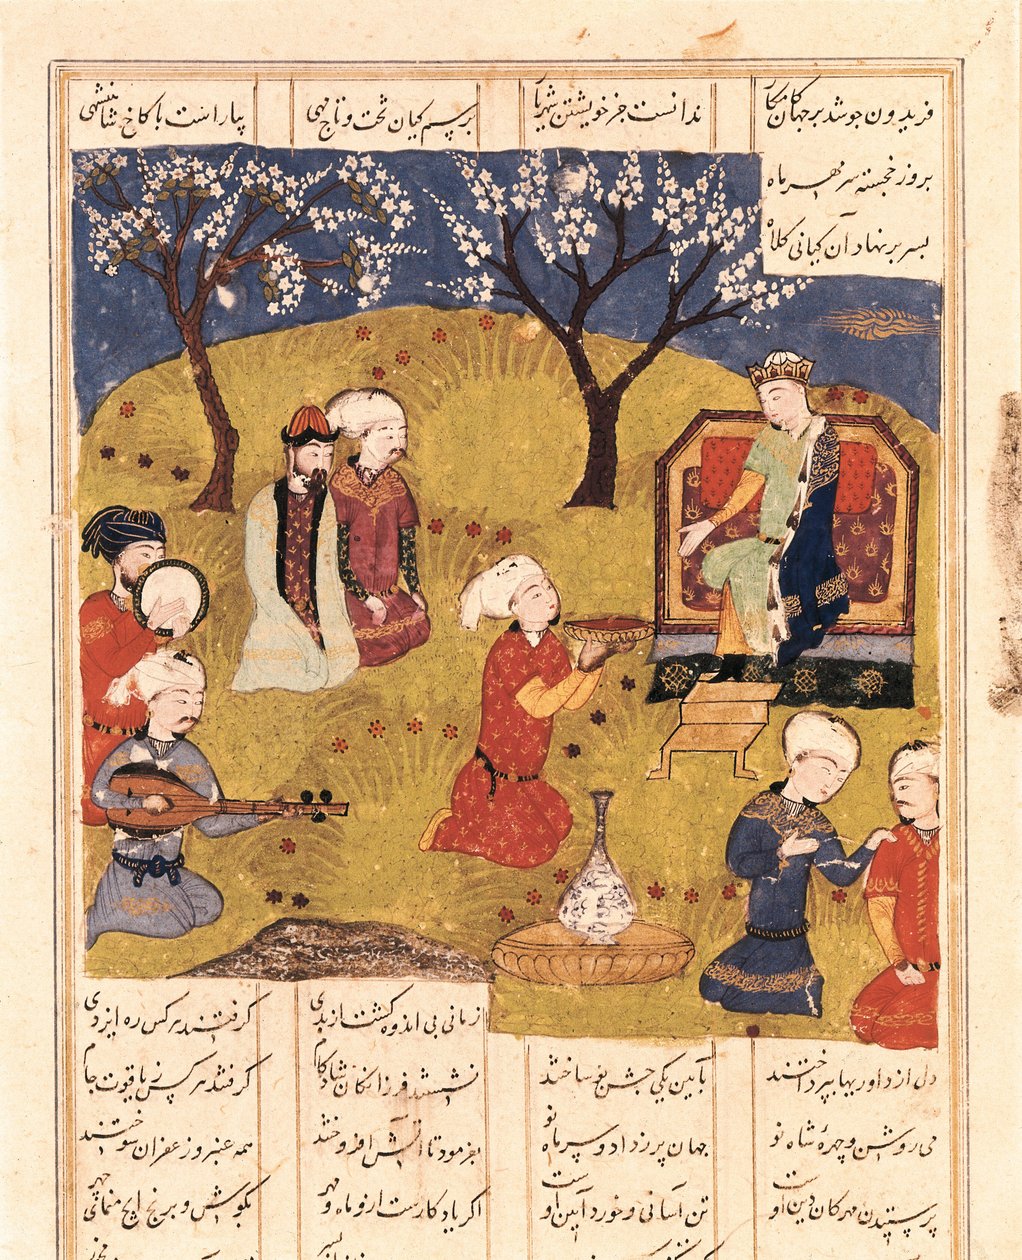 فریدون چو شد بر جهان کامکار ندانست جز خویشتن شهریار برسم کیان تخت و تاج مهی بیاراست با کاخ شاهنشهی
بروز خجسته سر مهر ماه
بسر بر نهاد آن کیانی کلاه
زمانی بی اندوه کشت از بدی کرفتند هر کس ره ایزدی
دل از داوریها بپرداختند بآیین یکی جشن نو ساختند نشستند فرزانکان شادکام کرفتند هر کس ز یاقوت جام
می روشن و چهرهٔ شاه نو جهان پر ز داد و سر ماه نو بفرمود تا آتش افروختند همه عنبر و زعفران سوختند
پرستیدن مهرکان دین اوست تن آسانی و خورد آیین اوست اکر یادکارست ازو ماه مهر بکوش و برنج ایچ منمای چهر